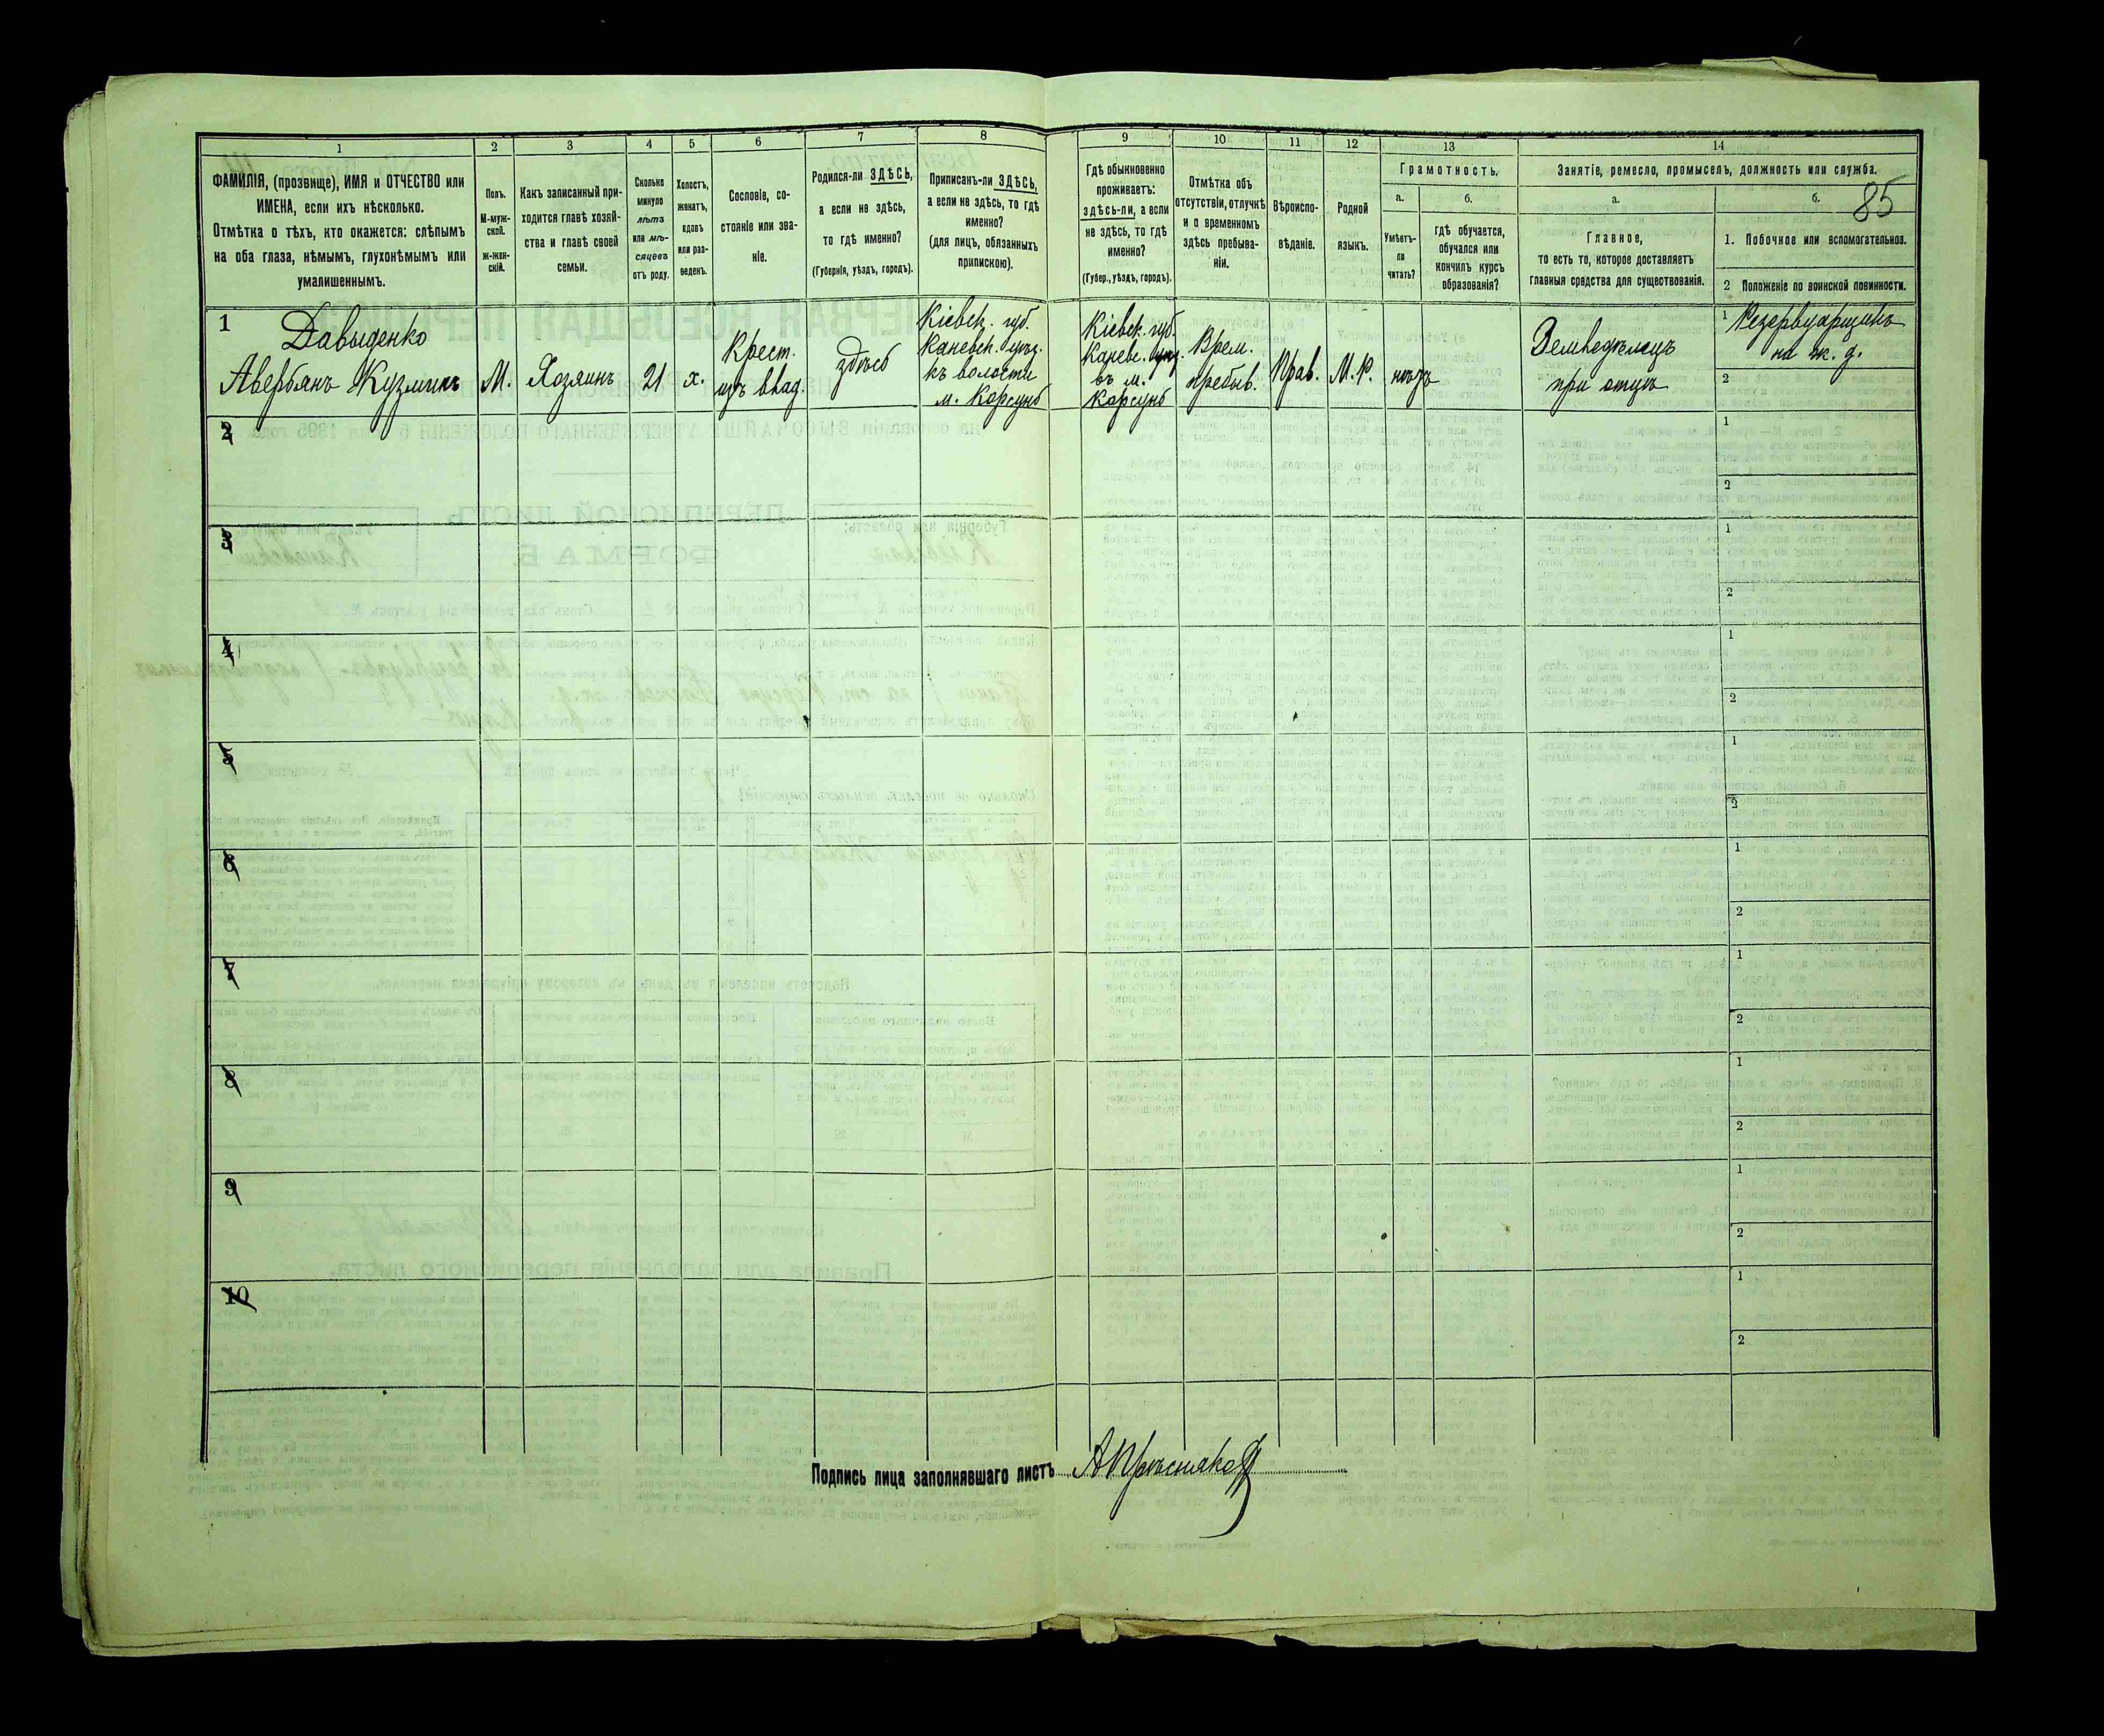 85
1
2
3
4
5
6
7
8
9
10
11
12
13
14
ФАМИЛІЯ, (прозвище), ИМЯ и ОТЧЕСТВО или
ИМЕНА, если ихъ нѣсколько.
Отмѣтка о тѣхъ, кто окажется: слѣпымъ
на оба глаза, нѣмымъ, глухонѣмымъ или
умалишеннымъ.
Полъ.
М-муж-
ской.
ж-жен-
скій.
Какъ записанный при-
ходится главѣ хозяй-
ства и главѣ своей
семьи.
Сколько
минуло
лѣтъ
или мѣ-
сяцевъ
отъ роду.
Холостъ,
женатъ,
вдовъ
или раз-
веденъ.
Сословіе, со-
стояніе или зва-
ніе.
Родился-ли ЗДѢСЬ,
а если не здѣсь,
то гдѣ именно?
(Губернія, уѣздъ, городъ).
Приписанъ-ли ЗДѢСЬ,
а если не здѣсь, то гдѣ
именно?
(для лицъ, обязанныхъ
припискою).
Гдѣ обыкновенно
проживаетъ:
здѣсь-ли, а если
не здѣсь, то гдѣ
именно?
(Губер., уѣздъ, городъ).
Отмѣтка объ
отсутствіи, отлучкѣ
и о временномъ
здѣсь пребыва-
ніи.
Вѣроиспо-
вѣданіе.
Родной
языкъ.
Грамотность.
а.
Умѣетъ-
ли
читать?
б.
гдѣ обучается,
обучался или
кончилъ курсъ
образованія?
Занятіе, ремесло, промыселъ, должность или служба.
а.
Главное,
то есть то, которое доставляетъ
главныя средства для существованія.
б.
1. Побочное или вспомогательное.
2 Положеніе по воинской повинности.
1
Давыденко
Авербянъ Кузминъ
М.
Хозяинъ
21
х.
Крест.
изъ влад.
здѣсь
Кіевск. губ.
Каневск. уѣз.
къ волости
м. Корсунь
Кіевск. губ.
Каневс. уѣз.
въ м.
Корсунь
Врем.
пребыв.
Прав.
М. Р.
нѣтъ
Земледѣлецъ
при отцѣ
1 Резервуарщикъ
на ж. д.
2
2
1
2
3
1
2
4
1
2
5
1
2
6
1
2
7
1
2
8
1
2
9
1
2
10
1
2
Подпись лица заполнявшаго листъ